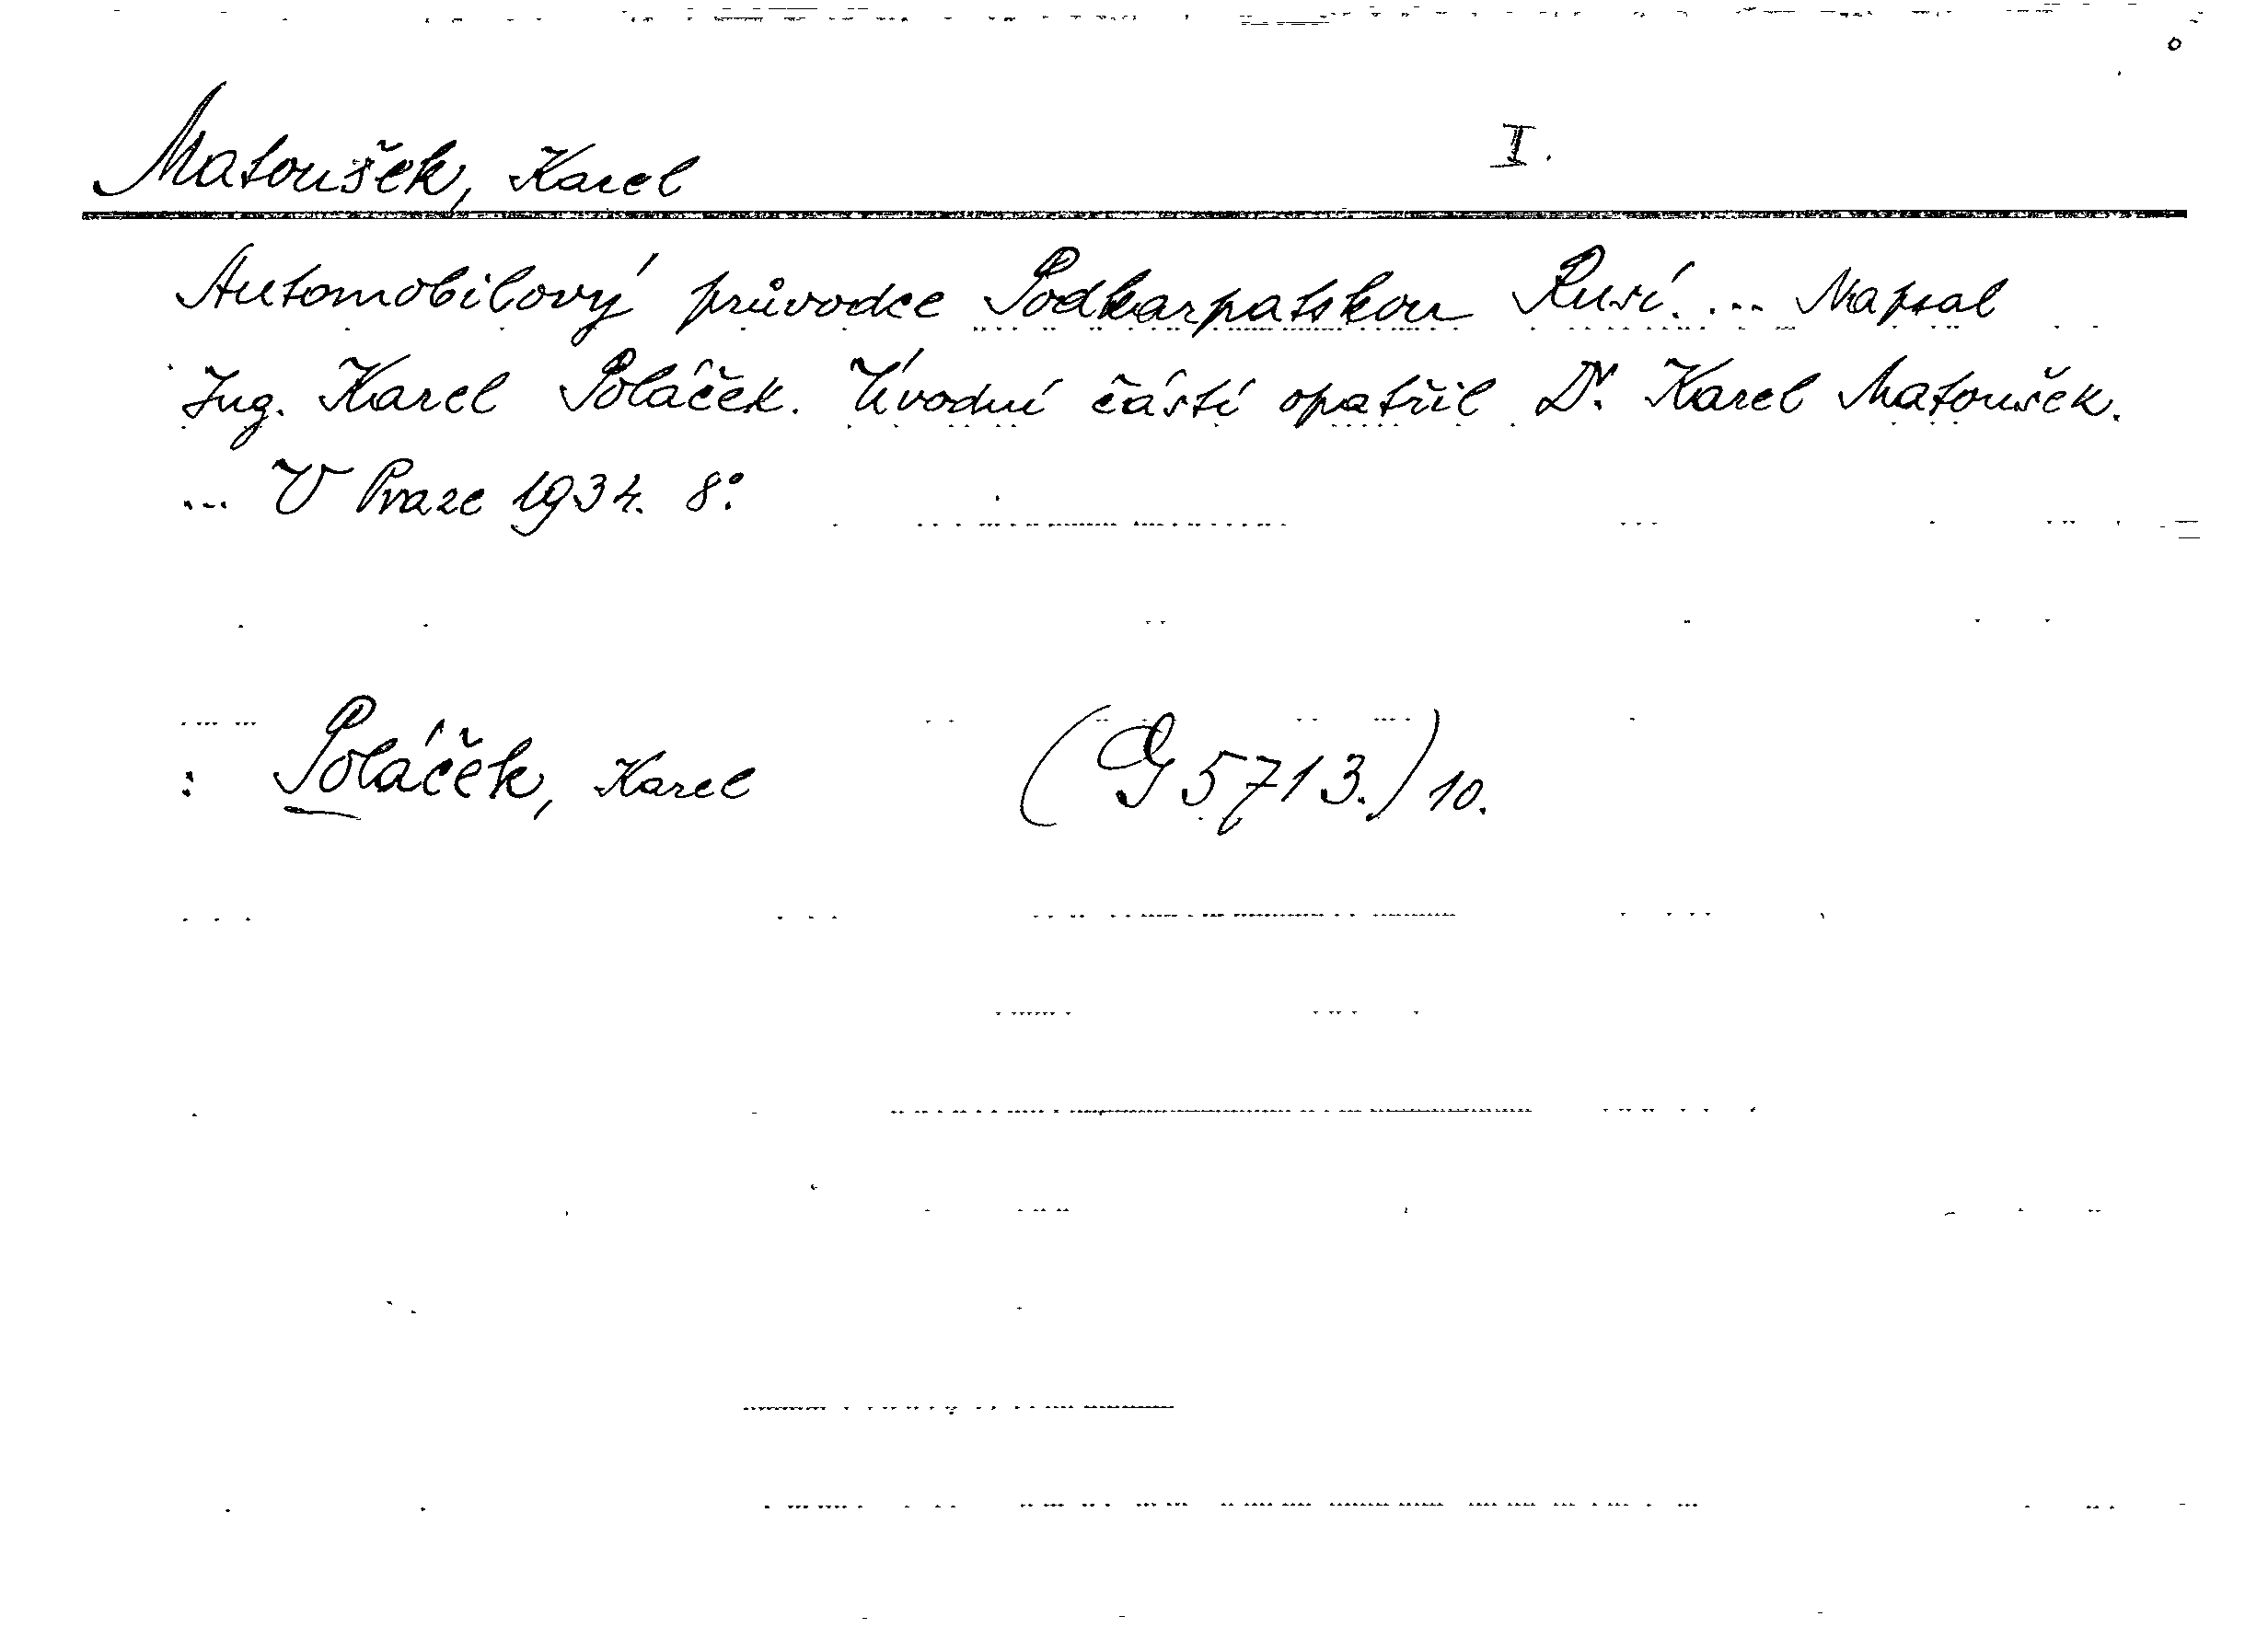 Matoušek, Karel I.
Automobilový průvodce Podkarpatskou Rusí. ... Napsal
Ing. Karel Poláček. Úvodní částí opatřil Dr. Karel Matoušek.
... V Praze 1934. 8°.
: Poláček, Karel (G 5713.) 10.